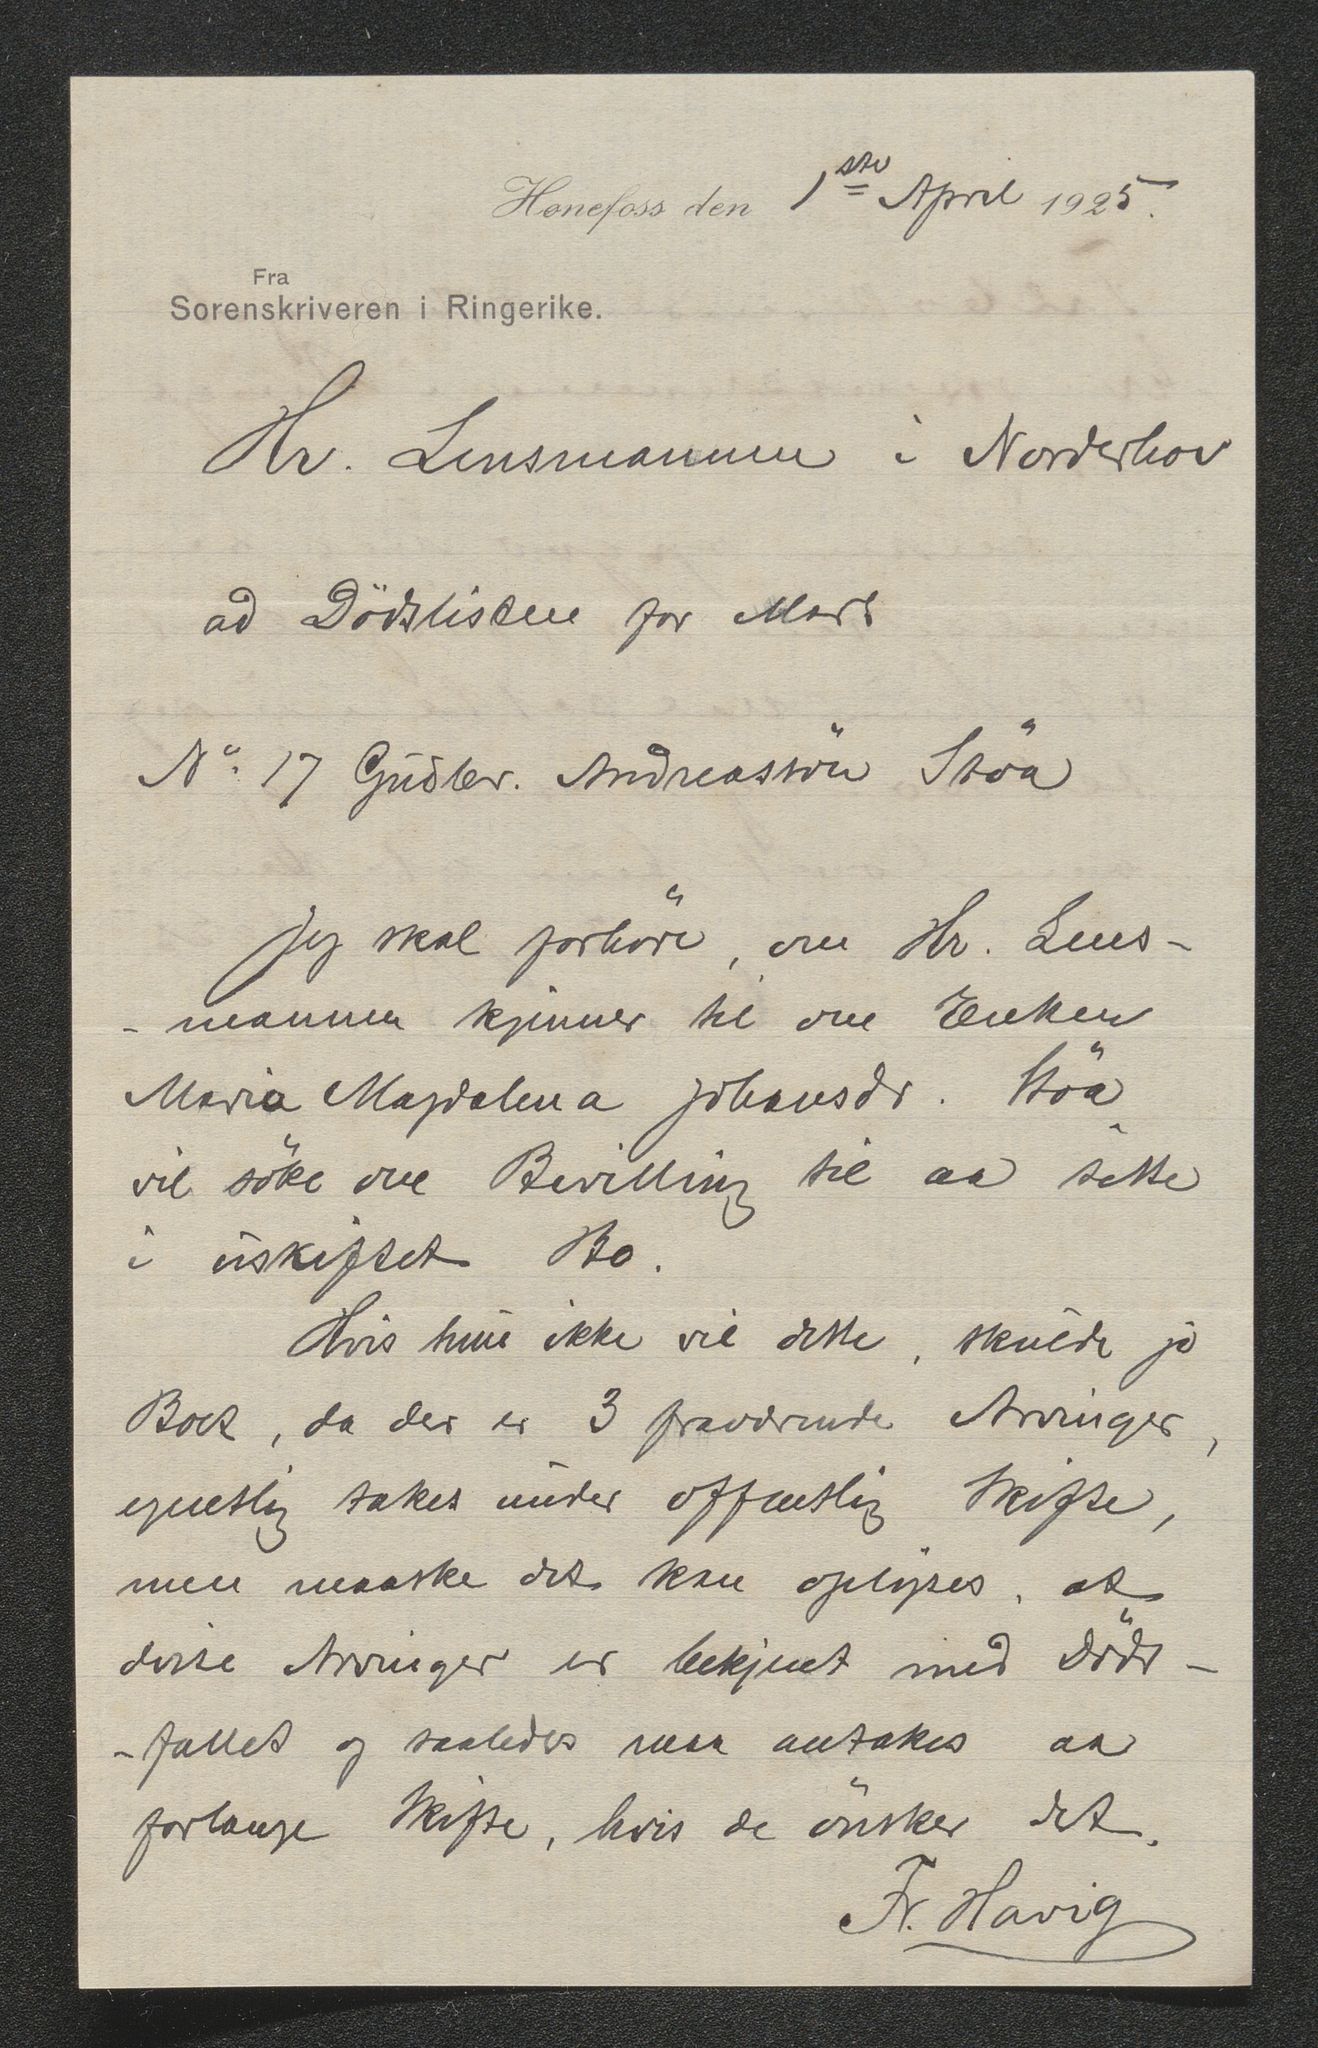 Hønefoss den 1ste April 1925.
Fra
Sorenskriveren i Ringerike.
Hr. Lensmannen i Norderhov
ad Dödslisten for Mars
No. 17 Gudbr. Andreassön Stöa
Jeg skal forhöre, om Hr. Lens-
-mannen kjenner til om Enken
Maria Magdalena Johansdr. Stöa
vil söke om Bevilling til aa sitte
i uskiftet Bo.
Hvis hun ikke vil dette, skulde jo
Boet, da der er 3 fraværende Arvinger,
egentlig takes under offentlig Skifte,
men maaske det kan oplyses, at
disse Arvinger er bekjent med Döds-
-fallet og saaledes maa antakes aa
forlange Skifte, hvis de önsker det.
Fr. Havig